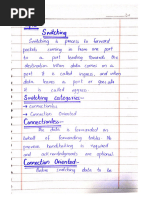 Switching
Switching is process to forward
packets coming in from one port
to a port leading towards the
destination. when data comes on a
port it is called ingress, and when
data leaves a port or goes out
it is called egress.
Switching categories:-
→ connectionless
→ Connection Oriented
Connectionless:-
The data is forwarded on
behalf of forwarding tables. No
previous handshaking is required
and acknowledgements are optional.
Connection Oriented:-
Before switching data to be